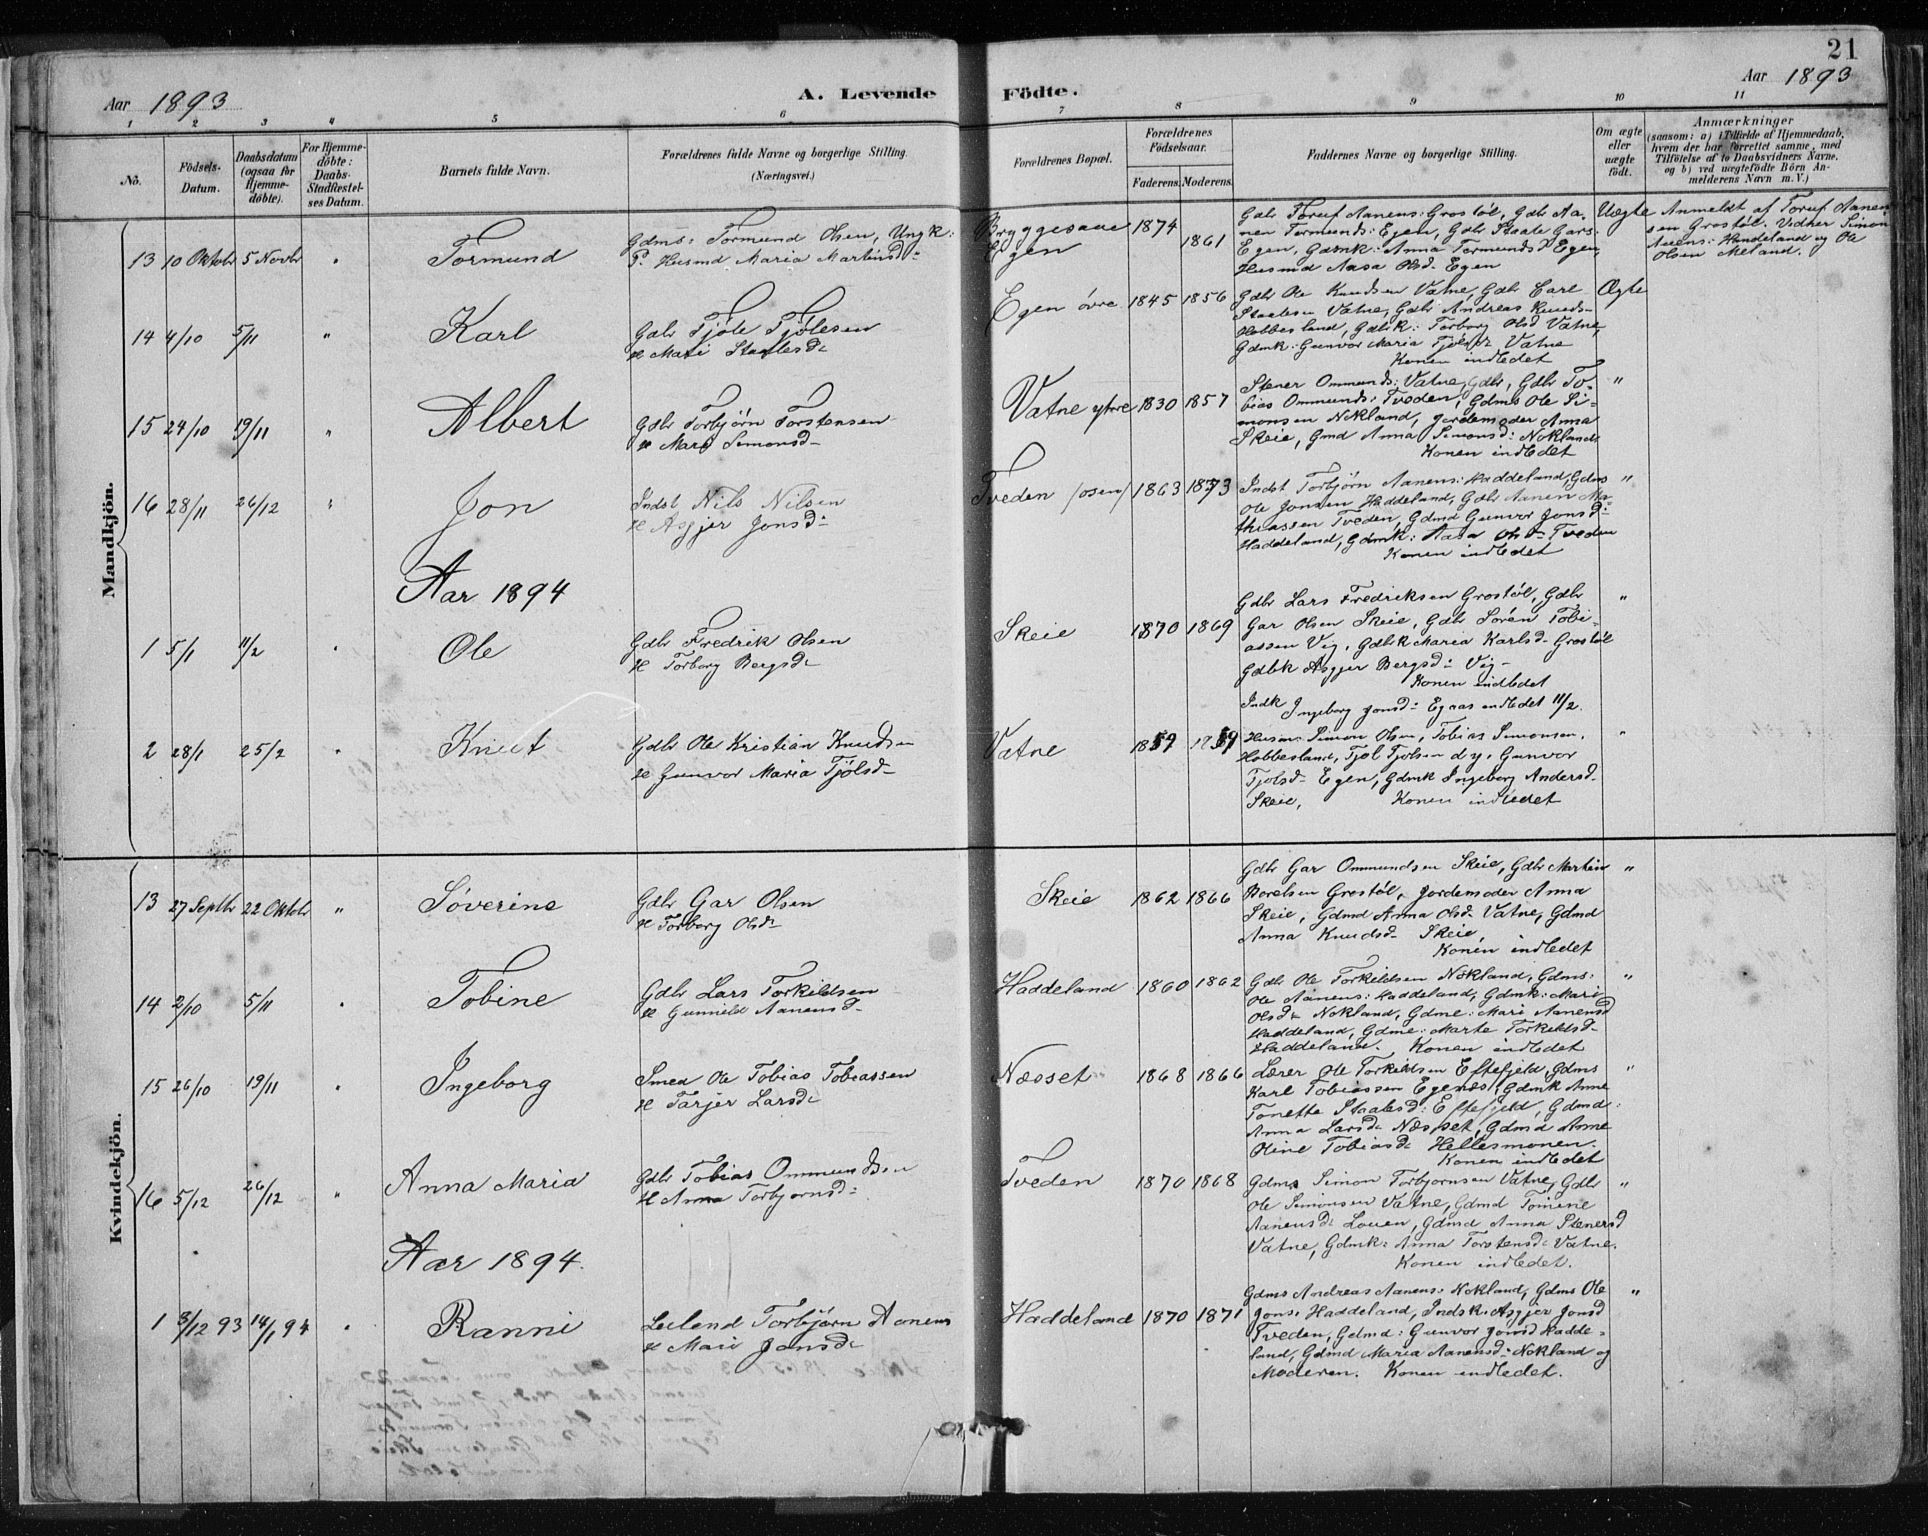 21
Aar 1893
A. Levende Födte.
Aar 1893
1 2 3 4 5 6 7 8 9 10 11
No.
Födsels-
Datum.
Daabsdatum
(ogsaa for
Hjemme-
döbte).
For Hjemme-
döbte:
Daabs-
Stadfæstel-
ses Datum.
Barnets fulde Navn.
Forældrenes fulde Navne og borgerlige Stilling.
(Næringsvei.)
Forældrenes Bopæl.
Forældrenes
Födselsaar.
Faderens. Moderens.
Faddernes Navne og borgerlige Stilling.
Om ægte
eller
uægte
födt.
Anmærkninger
(saasom: a) i Tilfælde af Hjemmedaab,
hvem der har forrettet samme, med
Tilföielse af to Daabsvidners Navne,
og b) ved uægtefödte Börn An-
melderens Navn m. V.)
Mandkjön.
13 10 Oktobr 5 Novbr " Tormund
Gdms: Tormund Olsen, Ungk:
P. Husmd Maria Martinsd:
Bryggesaae
Egen
1874 1861
Gdbr Toruf Aanens: Grostöl, Gdbr Aa-
nen Tormunds: Egen, Gdbr Staale Gars:
Egen, Gdmk: Anna Tormundsd Egen,
Husmd Aasa Olsd. Egen
Uægte
Anmeldt af Toruf Aanen-
sen Grostöl. Vidner Simon
Aanens: Hundeland og Ole
Olsen Meland.
14 4/10 5/11 " Karl
Gdbr Tjöle Tjölesen
H Mari Staalesd:
Egen övre 1845 1856
Gdbr Ole Knudsen Vatne, Gdbr Carl
Staalesen Vatne, Gdbr Andreas Knuds-
Hobbesland, Gdbrk: Torborg Olsd Vatne,
Gdmk: Gunvor Maria Tjölsd: Vatne
Konen indledet
Ægte
15 24/10 19/11 " Albert
Gdbr Torbjörn Torstensen
H Mari Simonsd-
Vatne ytre 1830 1857
Stener Ommunds: Vatne, Gdbr, Gdbr To-
bias Ommunds: Tveden, Gdms Ole Si-
monsen Nokland, Jordemoder Anna
Skeie, Gmd Anna Simonsd: Noklands
Konen indledet
"
16 28/11 26/12 " Jon
Indst Nils Nilsen
H Asgjer Jonsd:
Tveden /osen/ 1863 1873
Indst Torbjörn Aanens: Haddeland, Gdms
Ole Jonsen Haddeland, Gdbr Aanen Ma-
thiassen Tveden, Gdmd Gunvor Jonsd:
Haddeland, Gdmk: Aasa Olsd- Tveden
Konen indledet
"
Aar 1894
1 5/1 11/2 " Ole
Gdbr Fredrik Olsen
H Torborg Bergsd:
Skeie 1870 1869
Gdbr Lars Fredriksen Grostöl, Gdbr
Gar Olsen Skeie, Gdbr Sören Tobi-
assen Vig, Gdbk Maria Karlsd- Grostöl
Gdbk Asgjer Bergsd: Vig-
Konen indledet
"
Indk Ingeborg Jonsd: Egaas indledet 11/2.
2 28/1 25/2 " Knut
Gdbr Ole Kristian Knudsen
H Gunvor Maria Tjölsd-
Vatne
Simon Olsen, Tobias Simonsen,
Hobbesland, Tjöl Tjölsen d.y. Gunvor
Tjölsd- Egen, Gdmk Ingeborg Andersd-
Skeie, Konen indledet
"
Kvindekjön.
13 27 Septbr 22 Oktobr " Söverine
Gdbr Gar Olsen
H Torborg Olsd-
Skeie 1862 1866
Gdbr Gar Ommundsen Skeie, Gdbr Martin
Berelsen Grostöl, Jordemoder Anna
Skeie, Gdmd Anna Olsd. Vatne, Gdmd
Anna Knudsd- Skeie,
Konen indledet
"
14 2/10 5/11 " Tobine
Gdbr Lars Torkildsen
H Gunnild Aanensd-
Haddeland 1860 1862
Gdbr Ole Torkildsen Nokland, Gdms:
Ole Aanens: Haddeland, Gdmk: Mari
Olsd: Nokland, Gdme: Mari Aanensd
Haddeland, Gdme: Marte Torkildsd-
Haddeland. Konen indledet
"
15 26/10 19/11 " Ingeborg
Smed Ole Tobias Tobiassen
H Tarjer Larsd:
Næsset 1868 1866
Lærer Ole Torkildsen Eftefjeld, Gdms
Karl Tobiassen Egenes, Gdmk Anne
Tonette Staalesd: Eftefjeld, Gdmd:
Anna Larsd: Næsset, Gdmd Anne
Oline Tobiasd: Hellesmonen.
Konen indledet
"
16 5/12 26/12 " Anna Maria
Gdbr Tobias Ommundsen
H Anna Torbjornsd:
Tveden 1870 1868
Gdms Simon Torbjornsen Vatne, Gdbr
Ole Simonsen Vatne, Gdmd Tomine
Aanensd: Louen, Gdmd Anna Stenersd
Vatne, Gdmk: Anna Torstensd: Vatne.
Konen indledet.
"
Aar 1894.
1 3/12 93 14/1 94 " Ranni
Leiland Torbjörn Aanens
H Mari Jonsd:
Haddeland 1870 1871
Gdms Andreas Aanens: Nokland, Gdms Ole
Jons: Haddeland, Indsk: Asgjer Jonsd
Tveden, Gdmd: Gunvor Jonsd Hadde-
land, Gdmd Maria Aanensd: Nokland og
Moderen. Konen indledet.
"